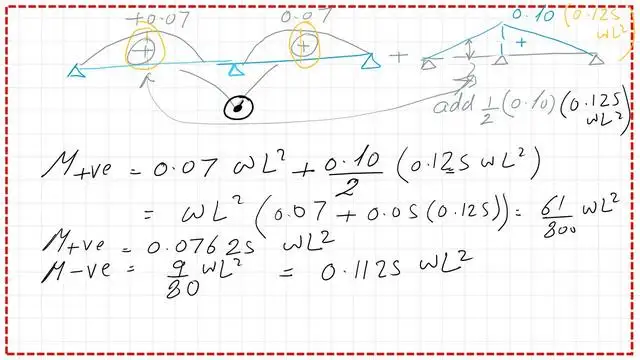 +0.07 0.07 0.10 (0.125 wL²)
+ + + +
add 1/2 (0.10) (0.125 wL²)
M+ve = 0.07 wL² + 0.10/2 (0.125 wL²)
= wL² (0.07 + 0.05 (0.125)) = 61/800 wL²
M+ve = 0.07625 wL²
M-ve = 9/80 wL² = 0.1125 wL²